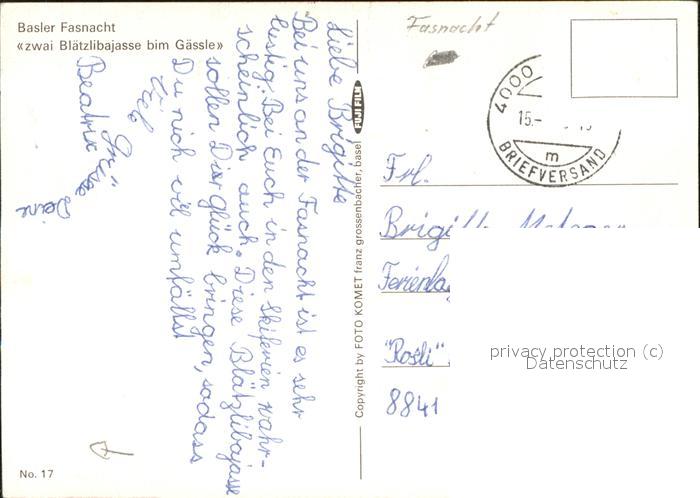 Basler Fasnacht
«zwai Blätzlibajasse bim Gässle»
Liebe Brigitte
Bei uns an der Fasnacht ist es sehr
lustig. Bei Euch in den Skiferien wahr-
scheinlich auch. Diese Blätzlibajasse
sollen Dier glück bringen, sodass
Du nich vil umfällst
Viel
Grüsse
Deine
Beatrix
No. 17
Copyright by FOTO KOMET franz grossenbacher, basel
FUJI FILM
Fasnacht
4000
15.-
BRIEFVERSAND
m
Frl.
Brigitte
"Rösli"
8841
privacy protection (c)
Datenschutz